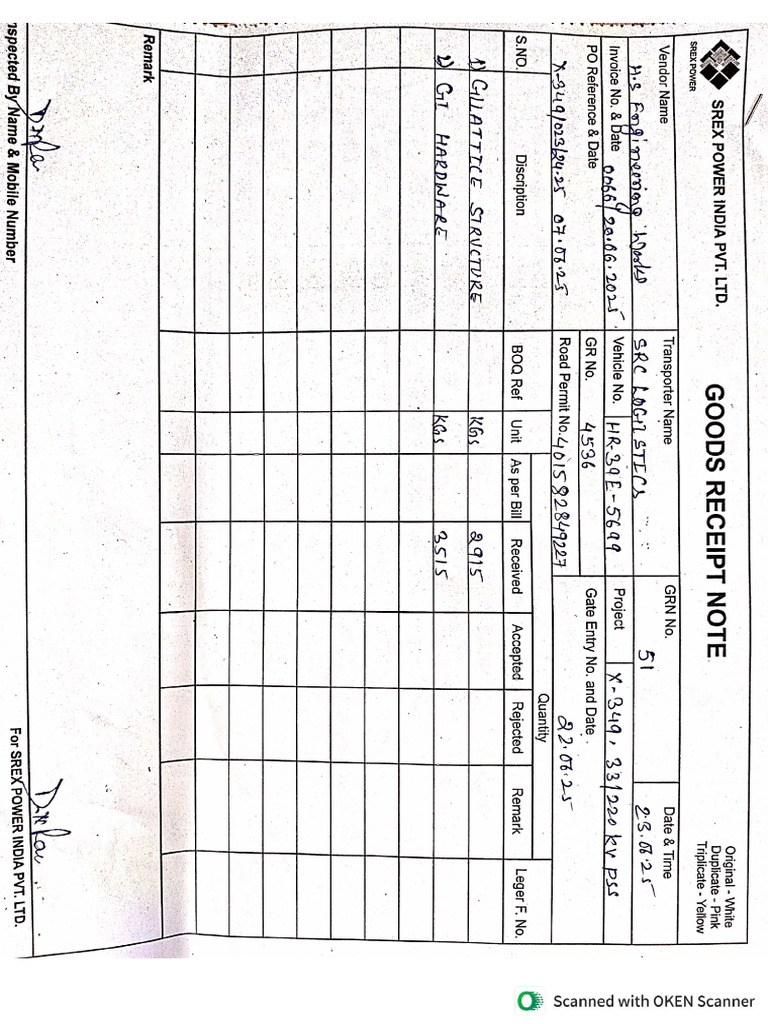 SREX POWER
SREX POWER INDIA PVT. LTD.
GOODS RECEIPT NOTE
Original - White
Duplicate - Pink
Triplicate - Yellow
Vendor Name
M.S Engineering Works
Transporter Name
SRC LOGISTICS
GRN No.
51
Date & Time
23.06.25
Invoice No. & Date 0066/20.06.2025.
Vehicle No. HR-39E-5699
Project X-349, 33/220 KV PSS
PO Reference & Date
X-349/023/24.25 07.06.25
GR No. 4536
Road Permit No. 401582849227
Gate Entry No. and Date
22.06.25
S.NO. Discription BOQ Ref Unit Quantity Leger F. No.
As per Bill Received Accepted Rejected Remark
1) GI LATTICE STRUCTURE KGs 2915
2) GI HARDWARE KGs 3515
Remark
nspected By Name & Mobile Number
For SREX POWER INDIA PVT. LTD.
Scanned with OKEN Scanner